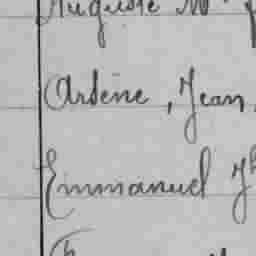 Auguste M
Arsène, Jean,
Emmanuel Jh